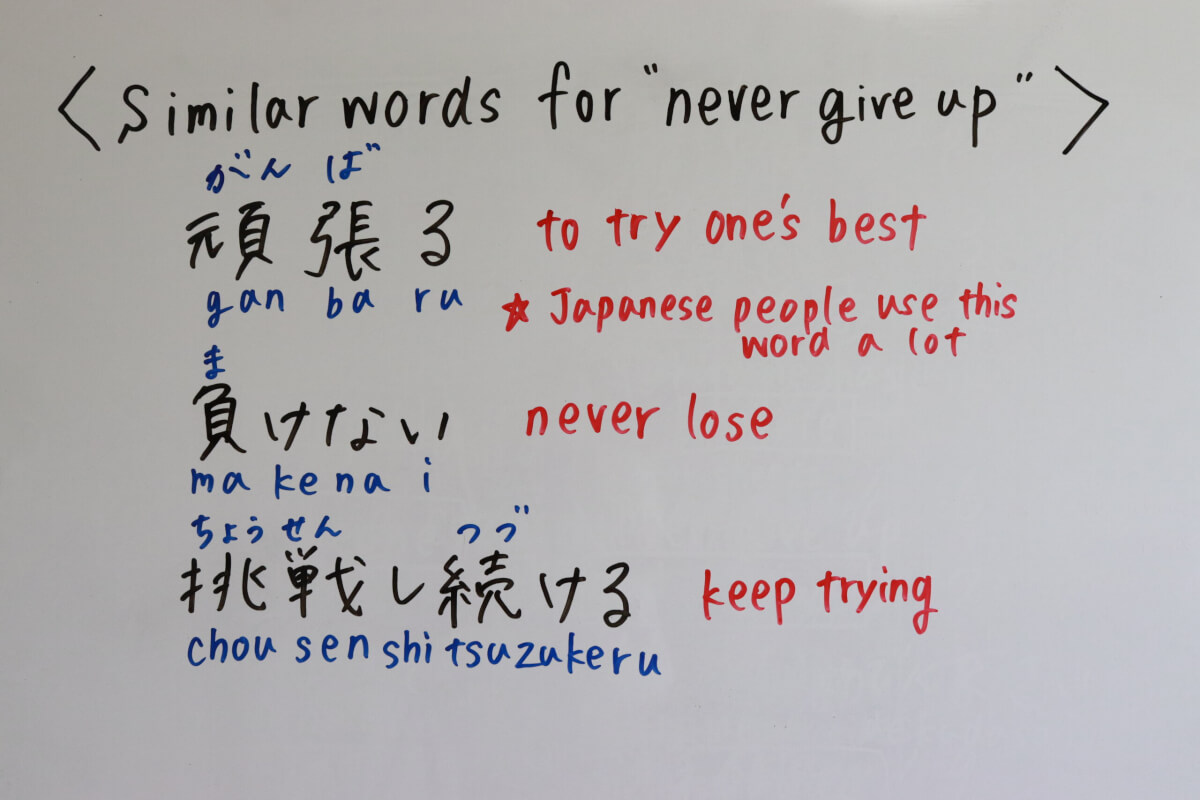 <Similar words for "never give up">
がん ば
頑張る to try one's best
gan ba ru ☆ Japanese people use this
word a lot
ま
負けない never lose
ma ke na i
ちょうせん つづ
挑戦し続ける keep trying
chou sen shi tsuzukeru